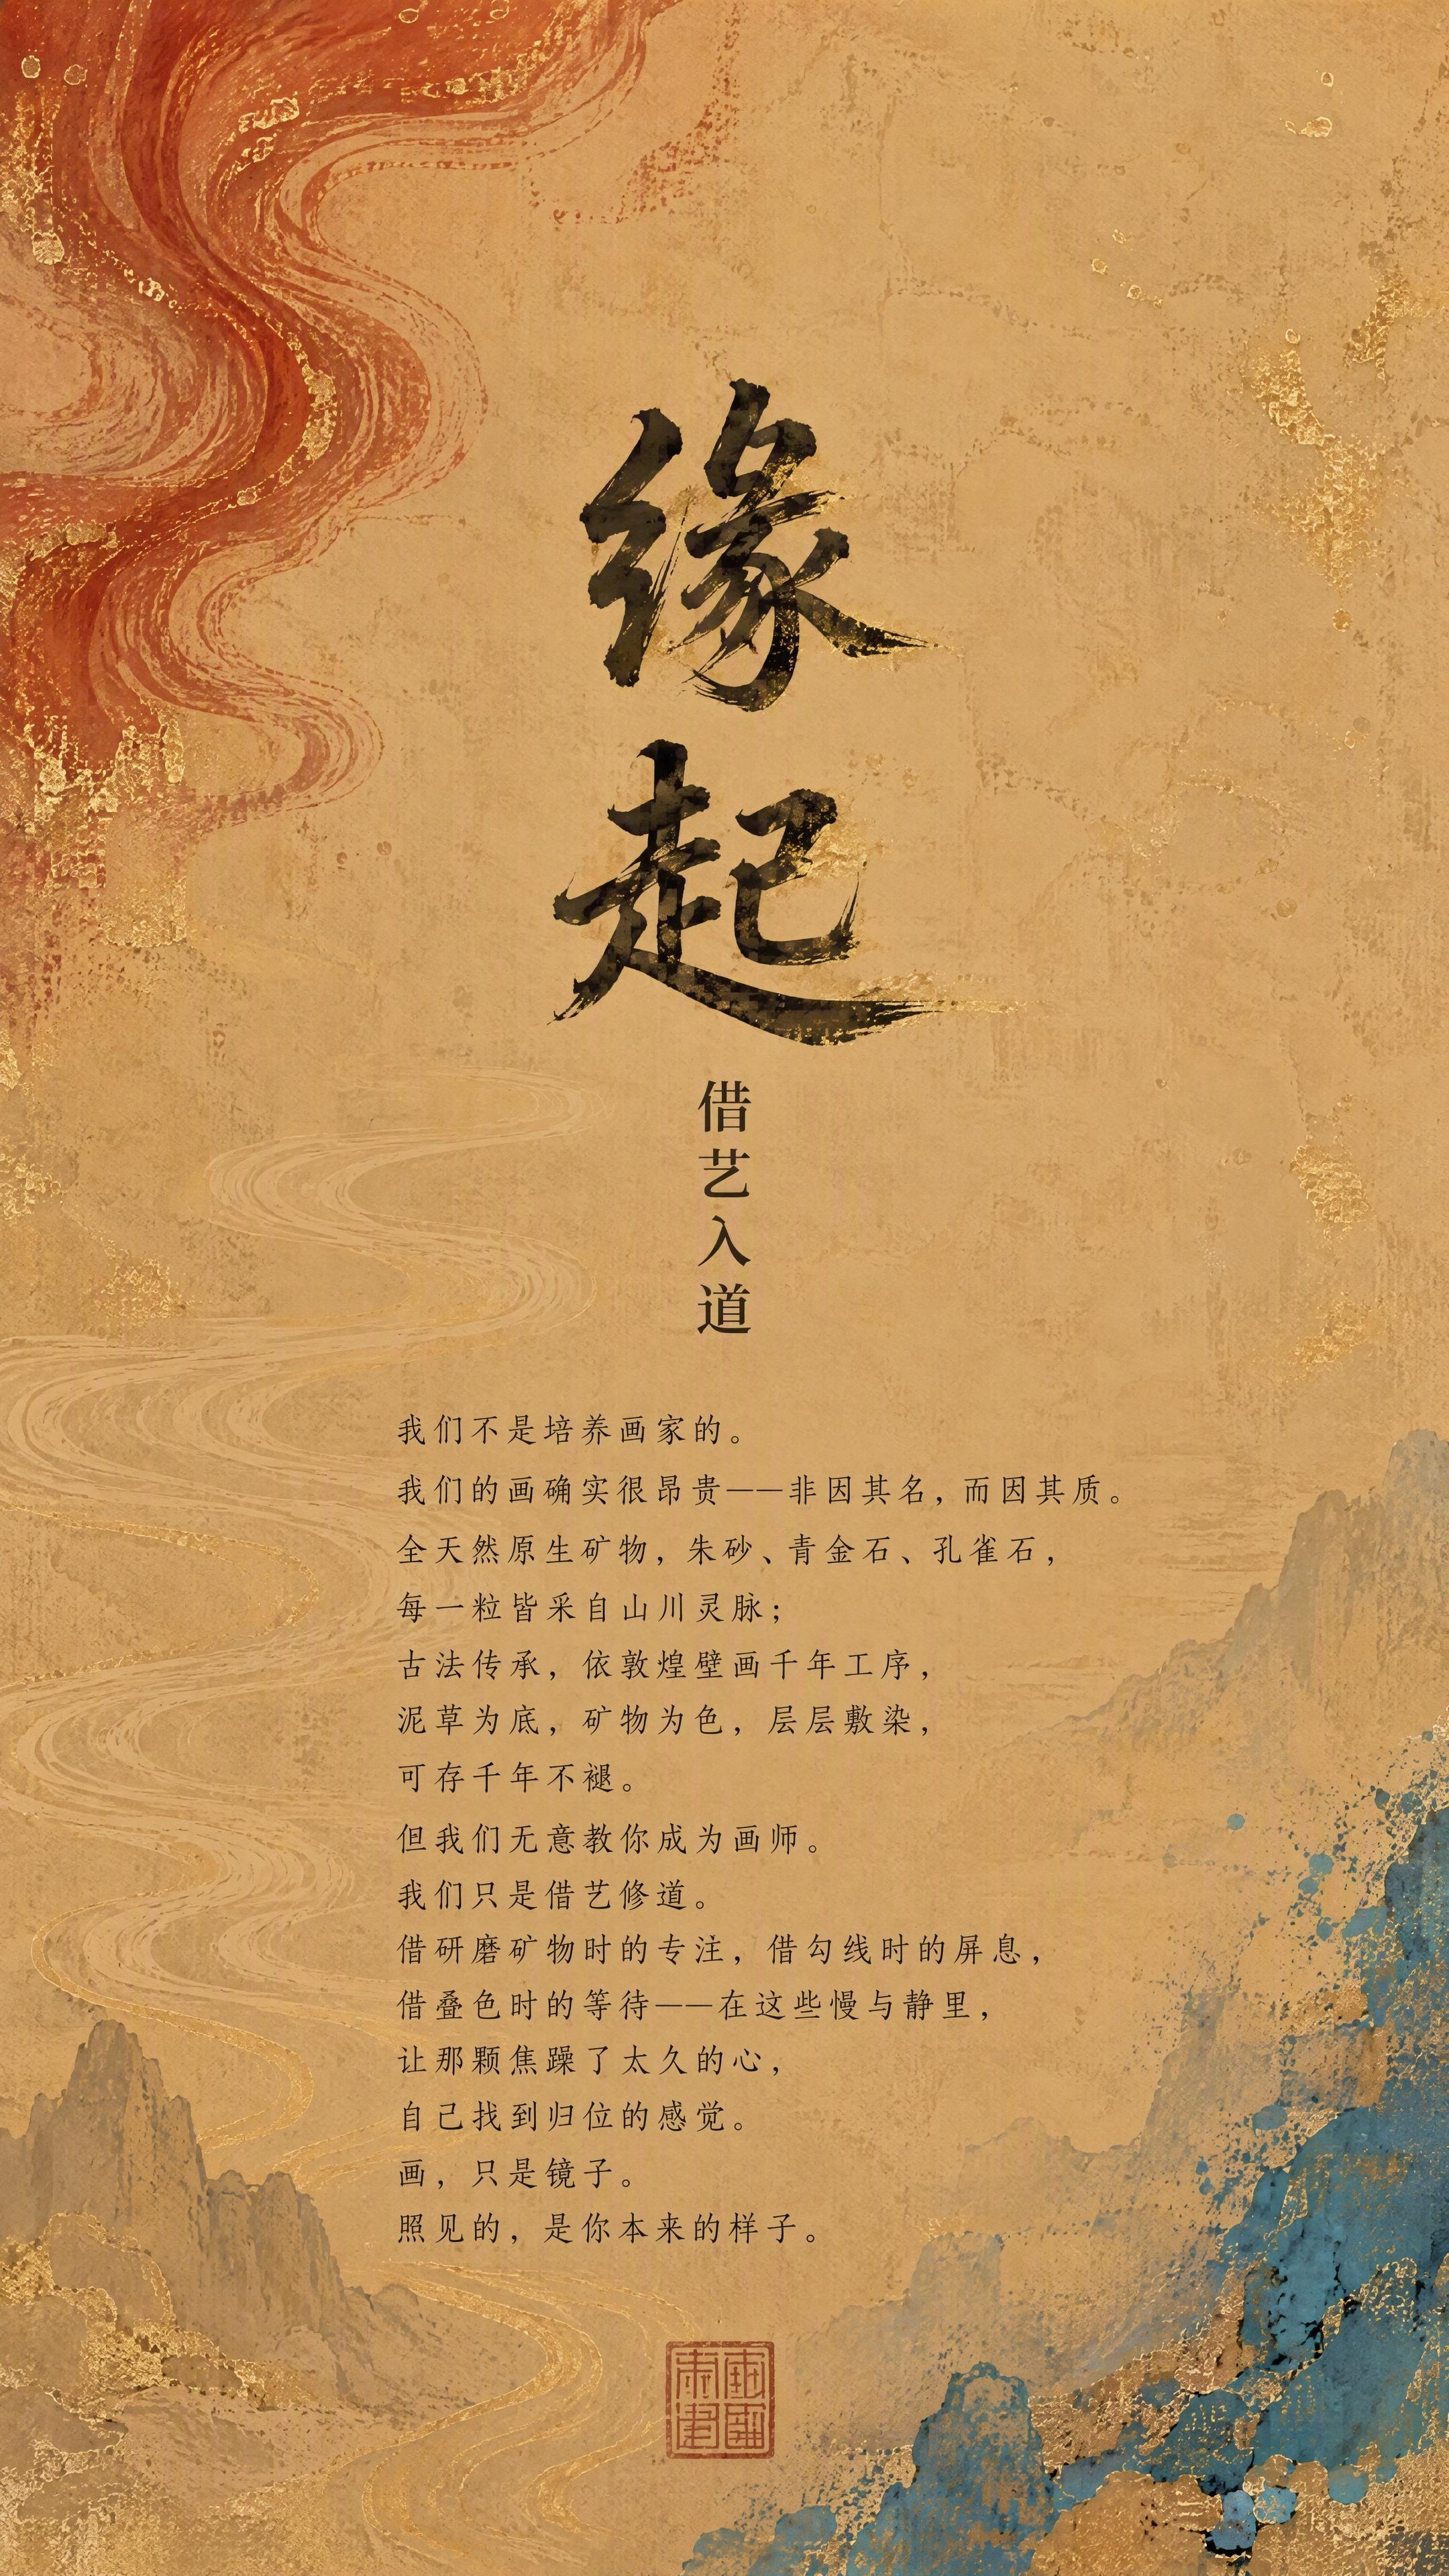 缘起
借艺入道
我们不是培养画家的。
我们的画确实很昂贵——非因其名，而因其质。
全天然原生矿物，朱砂、青金石、孔雀石，
每一粒皆采自山川灵脉；
古法传承，依敦煌壁画千年工序，
泥草为底，矿物为色，层层敷染，
可存千年不褪。
但我们无意教你成为画师。
我们只是借艺修道。
借研磨矿物时的专注，借勾线时的屏息，
借叠色时的等待——在这些慢与静里，
让那颗焦躁了太久的心，
自己找到归位的感觉。
画，只是镜子。
照见的，是你本来的样子。